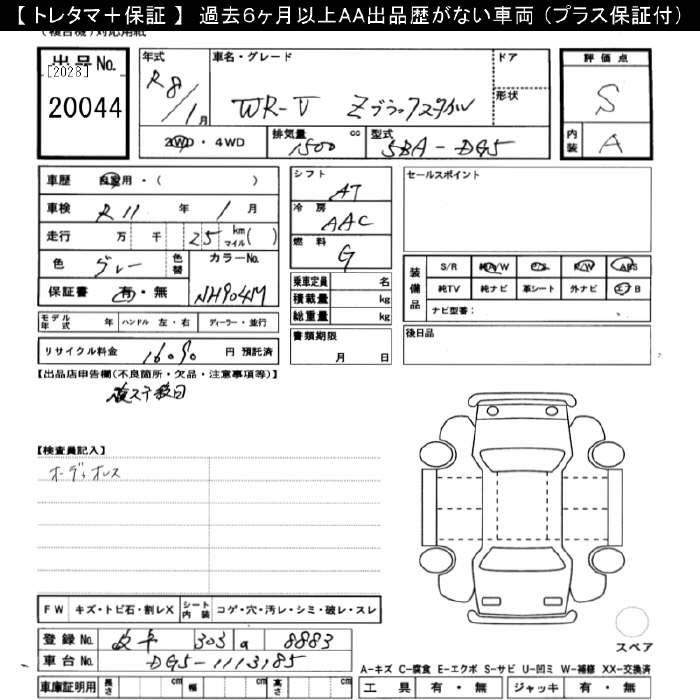 【 トレタマ＋保証 】 過去6ヶ月以上AA出品歴がない車両（プラス保証付）
(複合機)対応用紙
出品No.
[2028]
20044
年式
R8/1月
車名・グレード
WR-V Zブラックスタイル
ドア
形状
評価点
S
内装
A
2WD・4WD
排気量
1500
cc
型式
5BA-DG5
車歴
自家用・( )
車検
R11 年 1月
走行
万 千 25 km マイル( )
色
グレー
色替
カラーNo.
NH904M
保証書
有・無
モデル年式
年
ハンドル
左・右
ディーラー・並行
リサイクル料金
16090
円 預託済
シフト
AT
冷房
AAC
燃料
G
乗車定員
名
積載量
kg
総重量
kg
書類期限
月 日
セールスポイント
装備品
S/R
純A/W
P/S
P/W
ABS
純TV
純ナビ
革シート
外ナビ
エアB
ナビ型番:
後日品
【出品店申告欄(不良箇所・欠品・注意事項等)】
【検査員記入】
オーディオレス
FW
キズ・トビ石・割レX
シート内装
コゲ・穴・汚レ・シミ・破レ・スレ
登録No.
岐阜 303 a 8883
車台No.
DG5-1113185
車庫証明用
長さ
cm
幅
cm
高さ
cm
スペア
A-キズ C-腐食 E-エクボ S-サビ U-凹ミ W-補修 XX-交換済
工具
有・無
ジャッキ
有・無